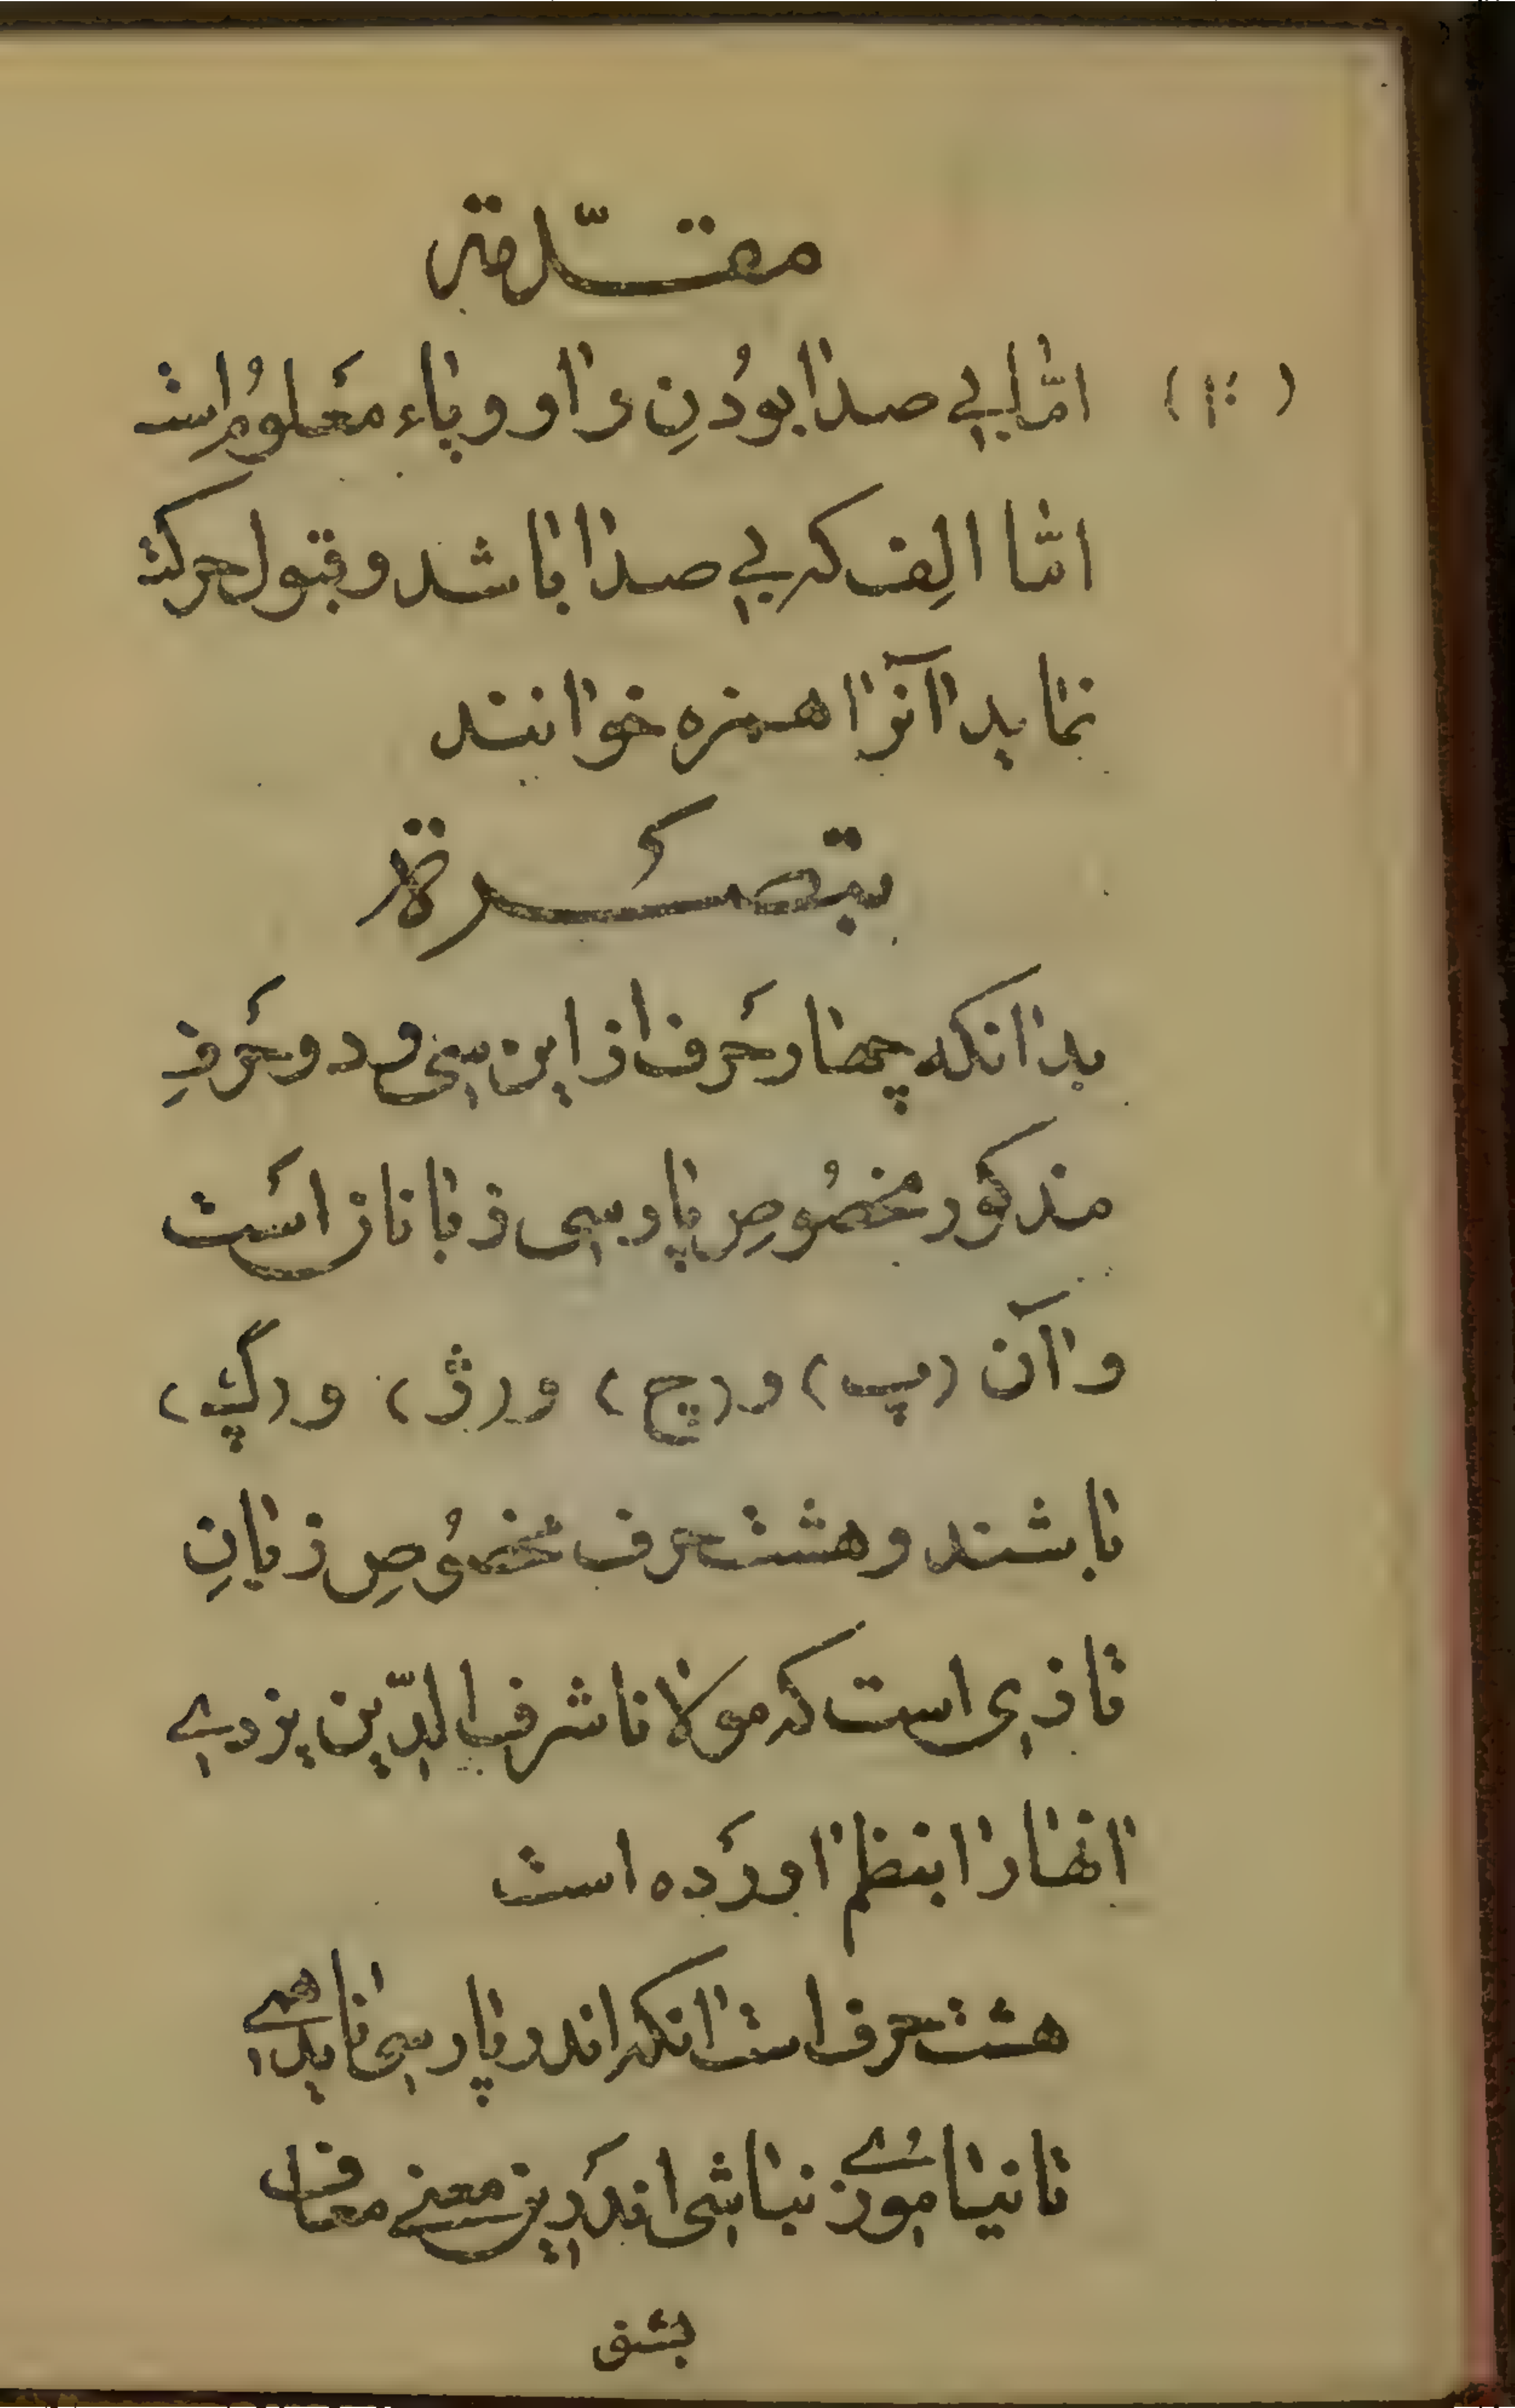 مقدّمة
(۱۰) امّا بی صدا بودُنِ واو و یاء مَعلوُم است
امّا الِف که بی صدا باشد و قبول حرکت
نماید آنرا همزه خوانند
تبصَرة
بدانکه چهار حَرف از این سی و دو حَرفِ
مذکور مخصُوصِ پارسی زبانان اَست
و آن (پ) و (چ) و (ژ) و (گ)
باشند و هشت حرف مخصُوصِ زبانِ
تازی است که مولانا شرف الدّین یزدی
انها را بنظم اورَده است
هشت حرف است انکه اندر پارسی ناید همی
تا نیاموزی نباشی اندَرین معنی معاف
بشنو